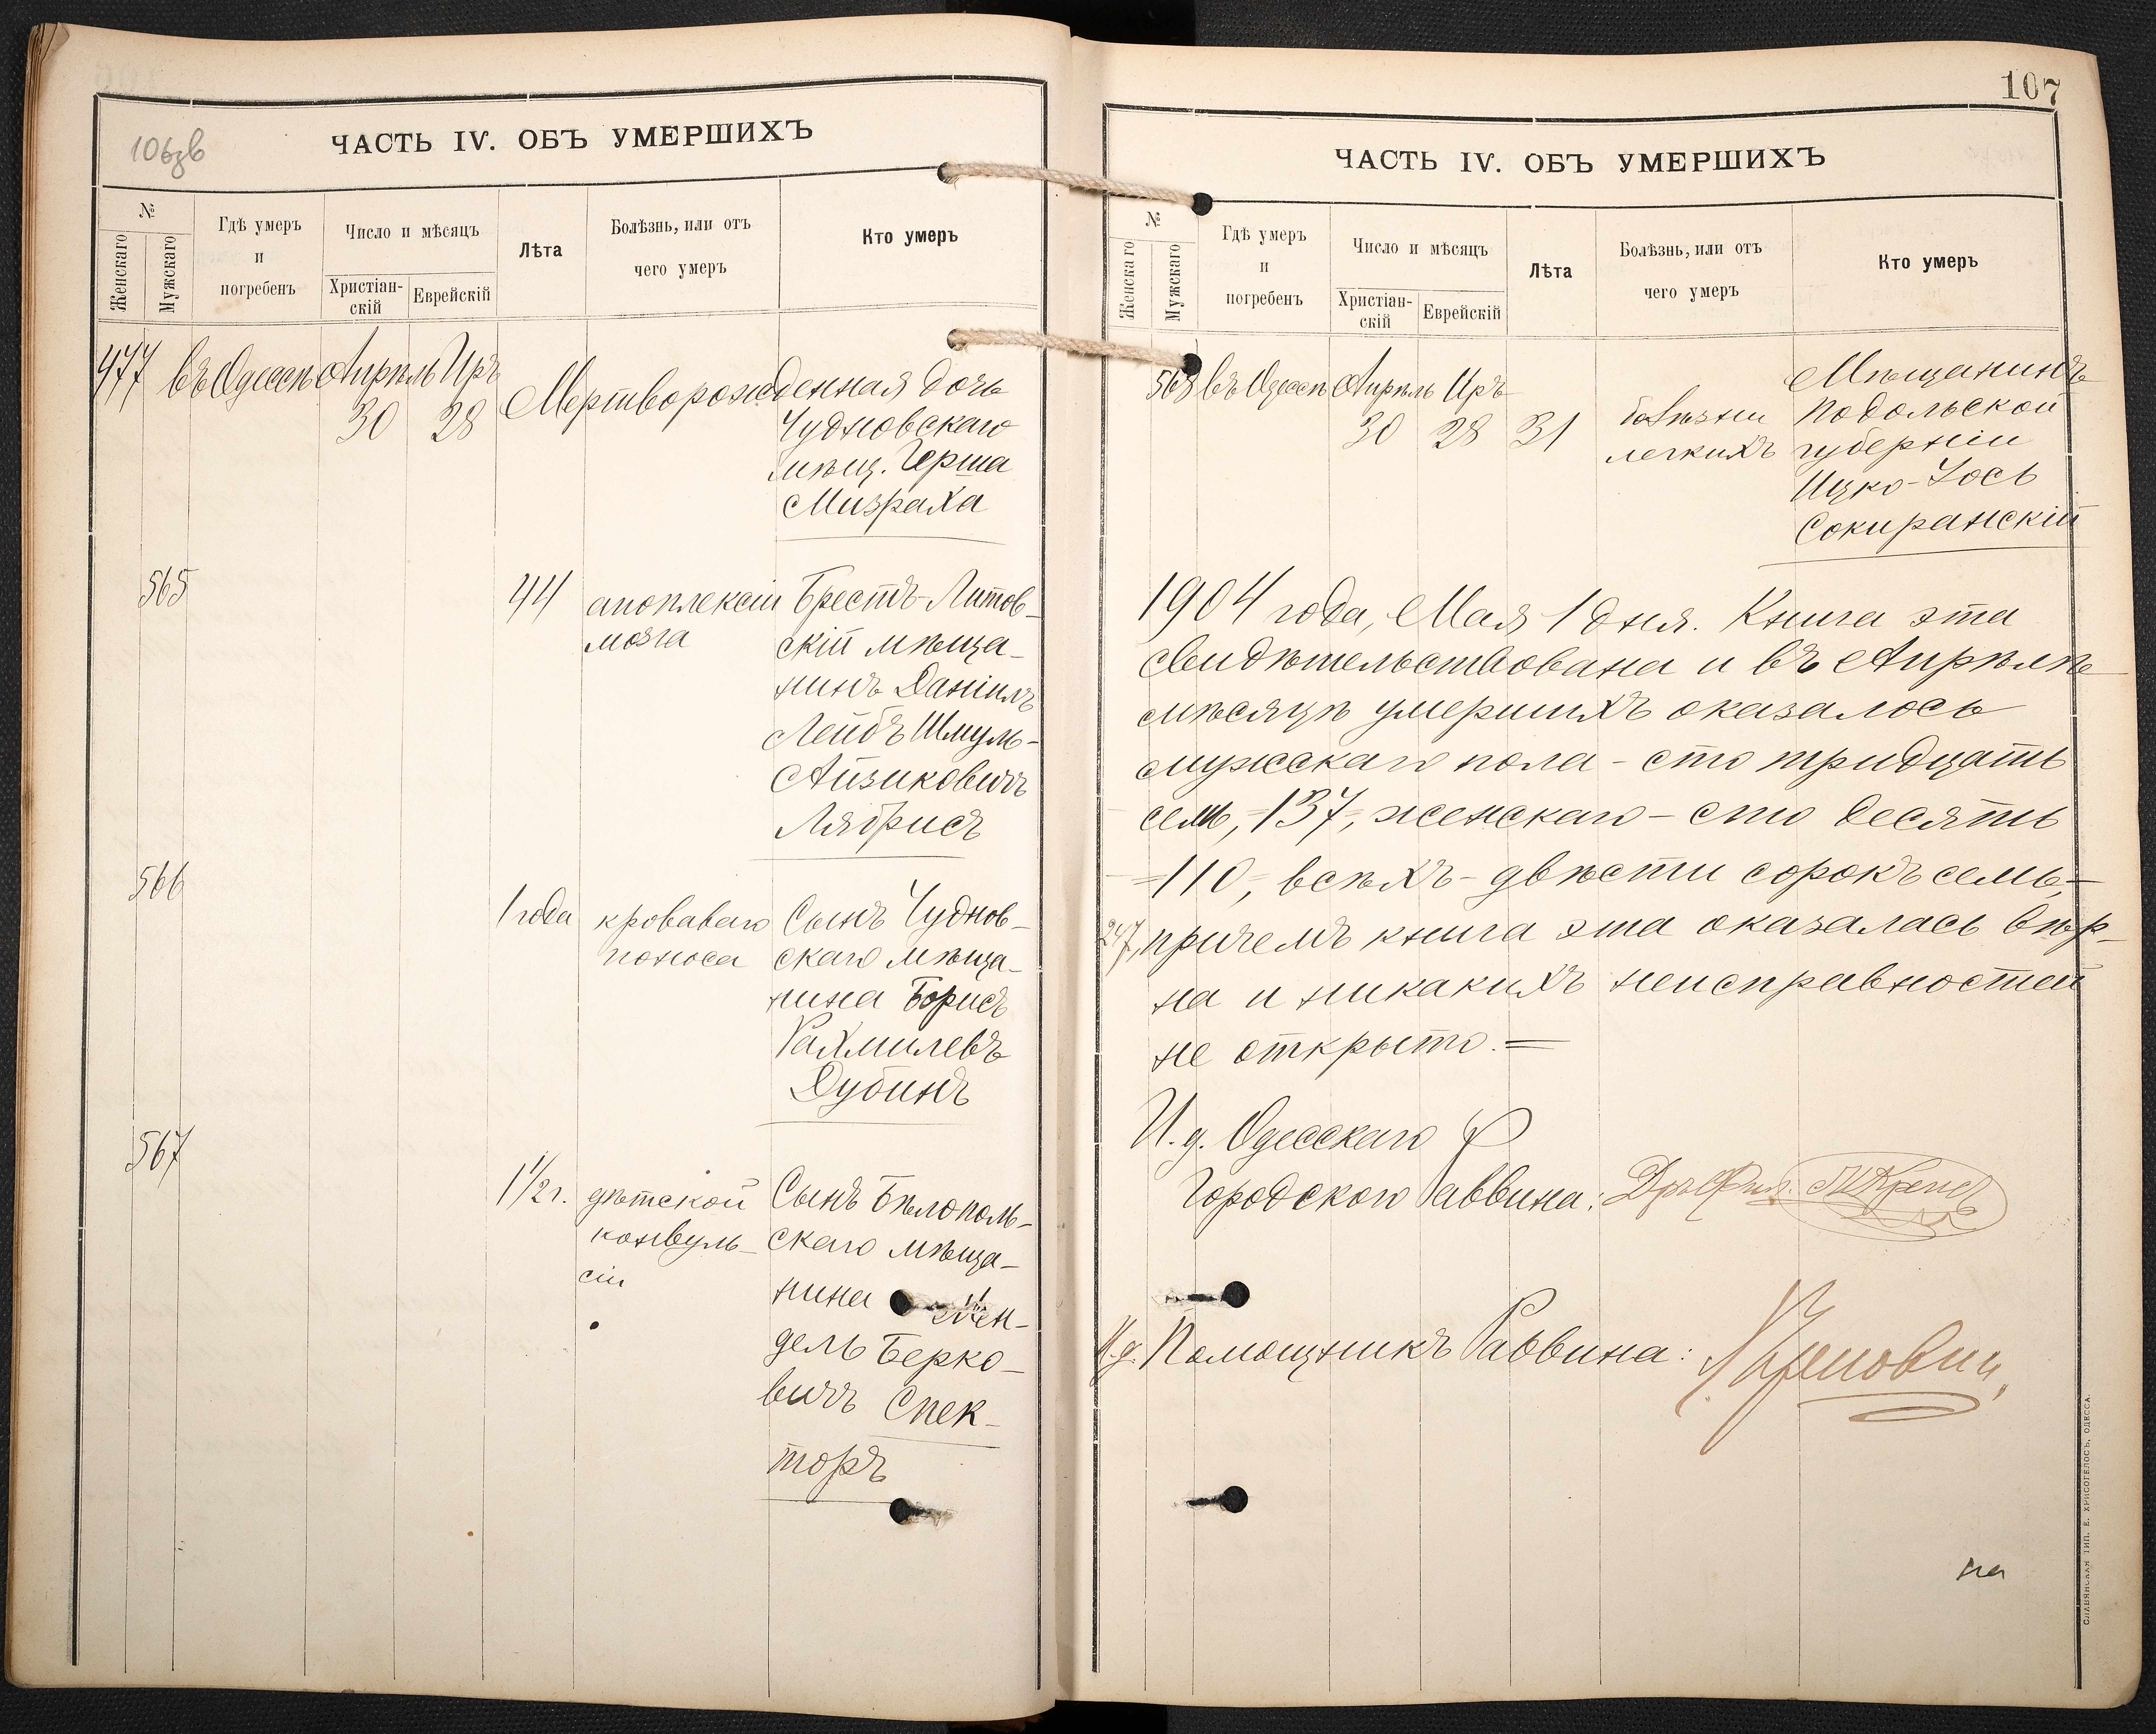 106зв
ЧАСТЬ IV. ОБЪ УМЕРШИХЪ
№
Женскаго
Мужскаго
Гдѣ умеръ
и
погребенъ
Число и мѣсяцъ
Христіан-
скій
Еврейскій
Лѣта
Болѣзнь, или отъ
чего умеръ
Кто умеръ
477 въ Одессѣ Апрѣль Иръ
30 28 Мертворожденная дочь
Чудновскаго
мѣщ. Герша
Мизраха
565
44 апоплексіи Брестъ-Литов-
мозга скій мѣща-
нинъ Даніилъ
Лейбъ Шмуль-
Айзиковичъ
Лябрисъ
566
1 года кроваваго Сынъ Чуднов-
поноса скаго мѣща-
нина Борисъ
Рахмилевъ
Дубинъ
567
1 1/2 г. дѣтской Сынъ Бѣлополь-
конвуль- скаго мѣща-
сіи нина
дель Берко-
вичъ Спек-
торъ
107
ЧАСТЬ IV. ОБЪ УМЕРШИХЪ
№
Женскаго
Мужскаго
Гдѣ умеръ
и
погребенъ
Число и мѣсяцъ
Христіан-
скій
Еврейскій
Лѣта
Болѣзнь, или отъ
чего умеръ
Кто умеръ
568 въ Одессѣ Апрѣль Иръ
30 28 31 болѣзни
легкихъ
Мѣщанинъ
Подольской
губерніи
Ицко-Іось
Сокиранскій
1904 года, Мая 1 дня. Книга эта
свидѣтельствована и въ Апрѣлѣ
мѣсяцѣ умершихъ оказалось
мужскаго пола - сто тридцать
семь, -137-, женскаго - сто десять
-110-, всѣхъ - двѣсти сорокъ семь, -
247, причемъ книга эта оказалась вѣр-
на и никакихъ неисправностей
не открыто. =
И. д. Одесскаго
Городского Раввина:
И.д. Помощникъ Раввина:
на
СЛАВЯНСКАЯ ТИП. Е. ХРИСОГЕЛОСЪ, ОДЕССА.